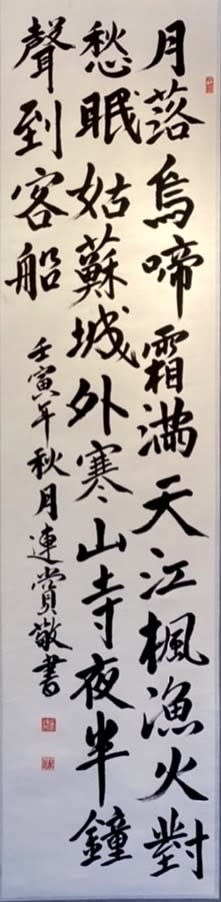 月落烏啼霜滿天江楓漁火對
愁眠姑蘇城外寒山寺夜半鐘
聲到客船
壬寅年秋月連賞敬書